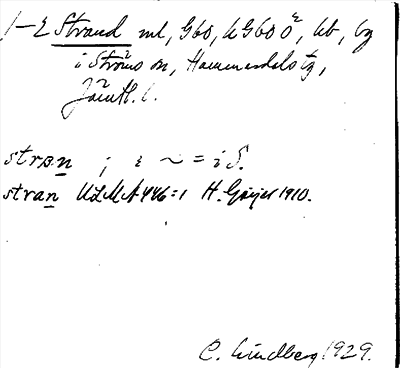 1-2 Strand ml, G60, UG60 02, Ub, by
i Ströms sn, Hammerdals tg,
Jämtl. l.
stran ; i ~ = i S.
stran ULMA 446:1 H. Geijer 1910.
C. Lindberg 1929.